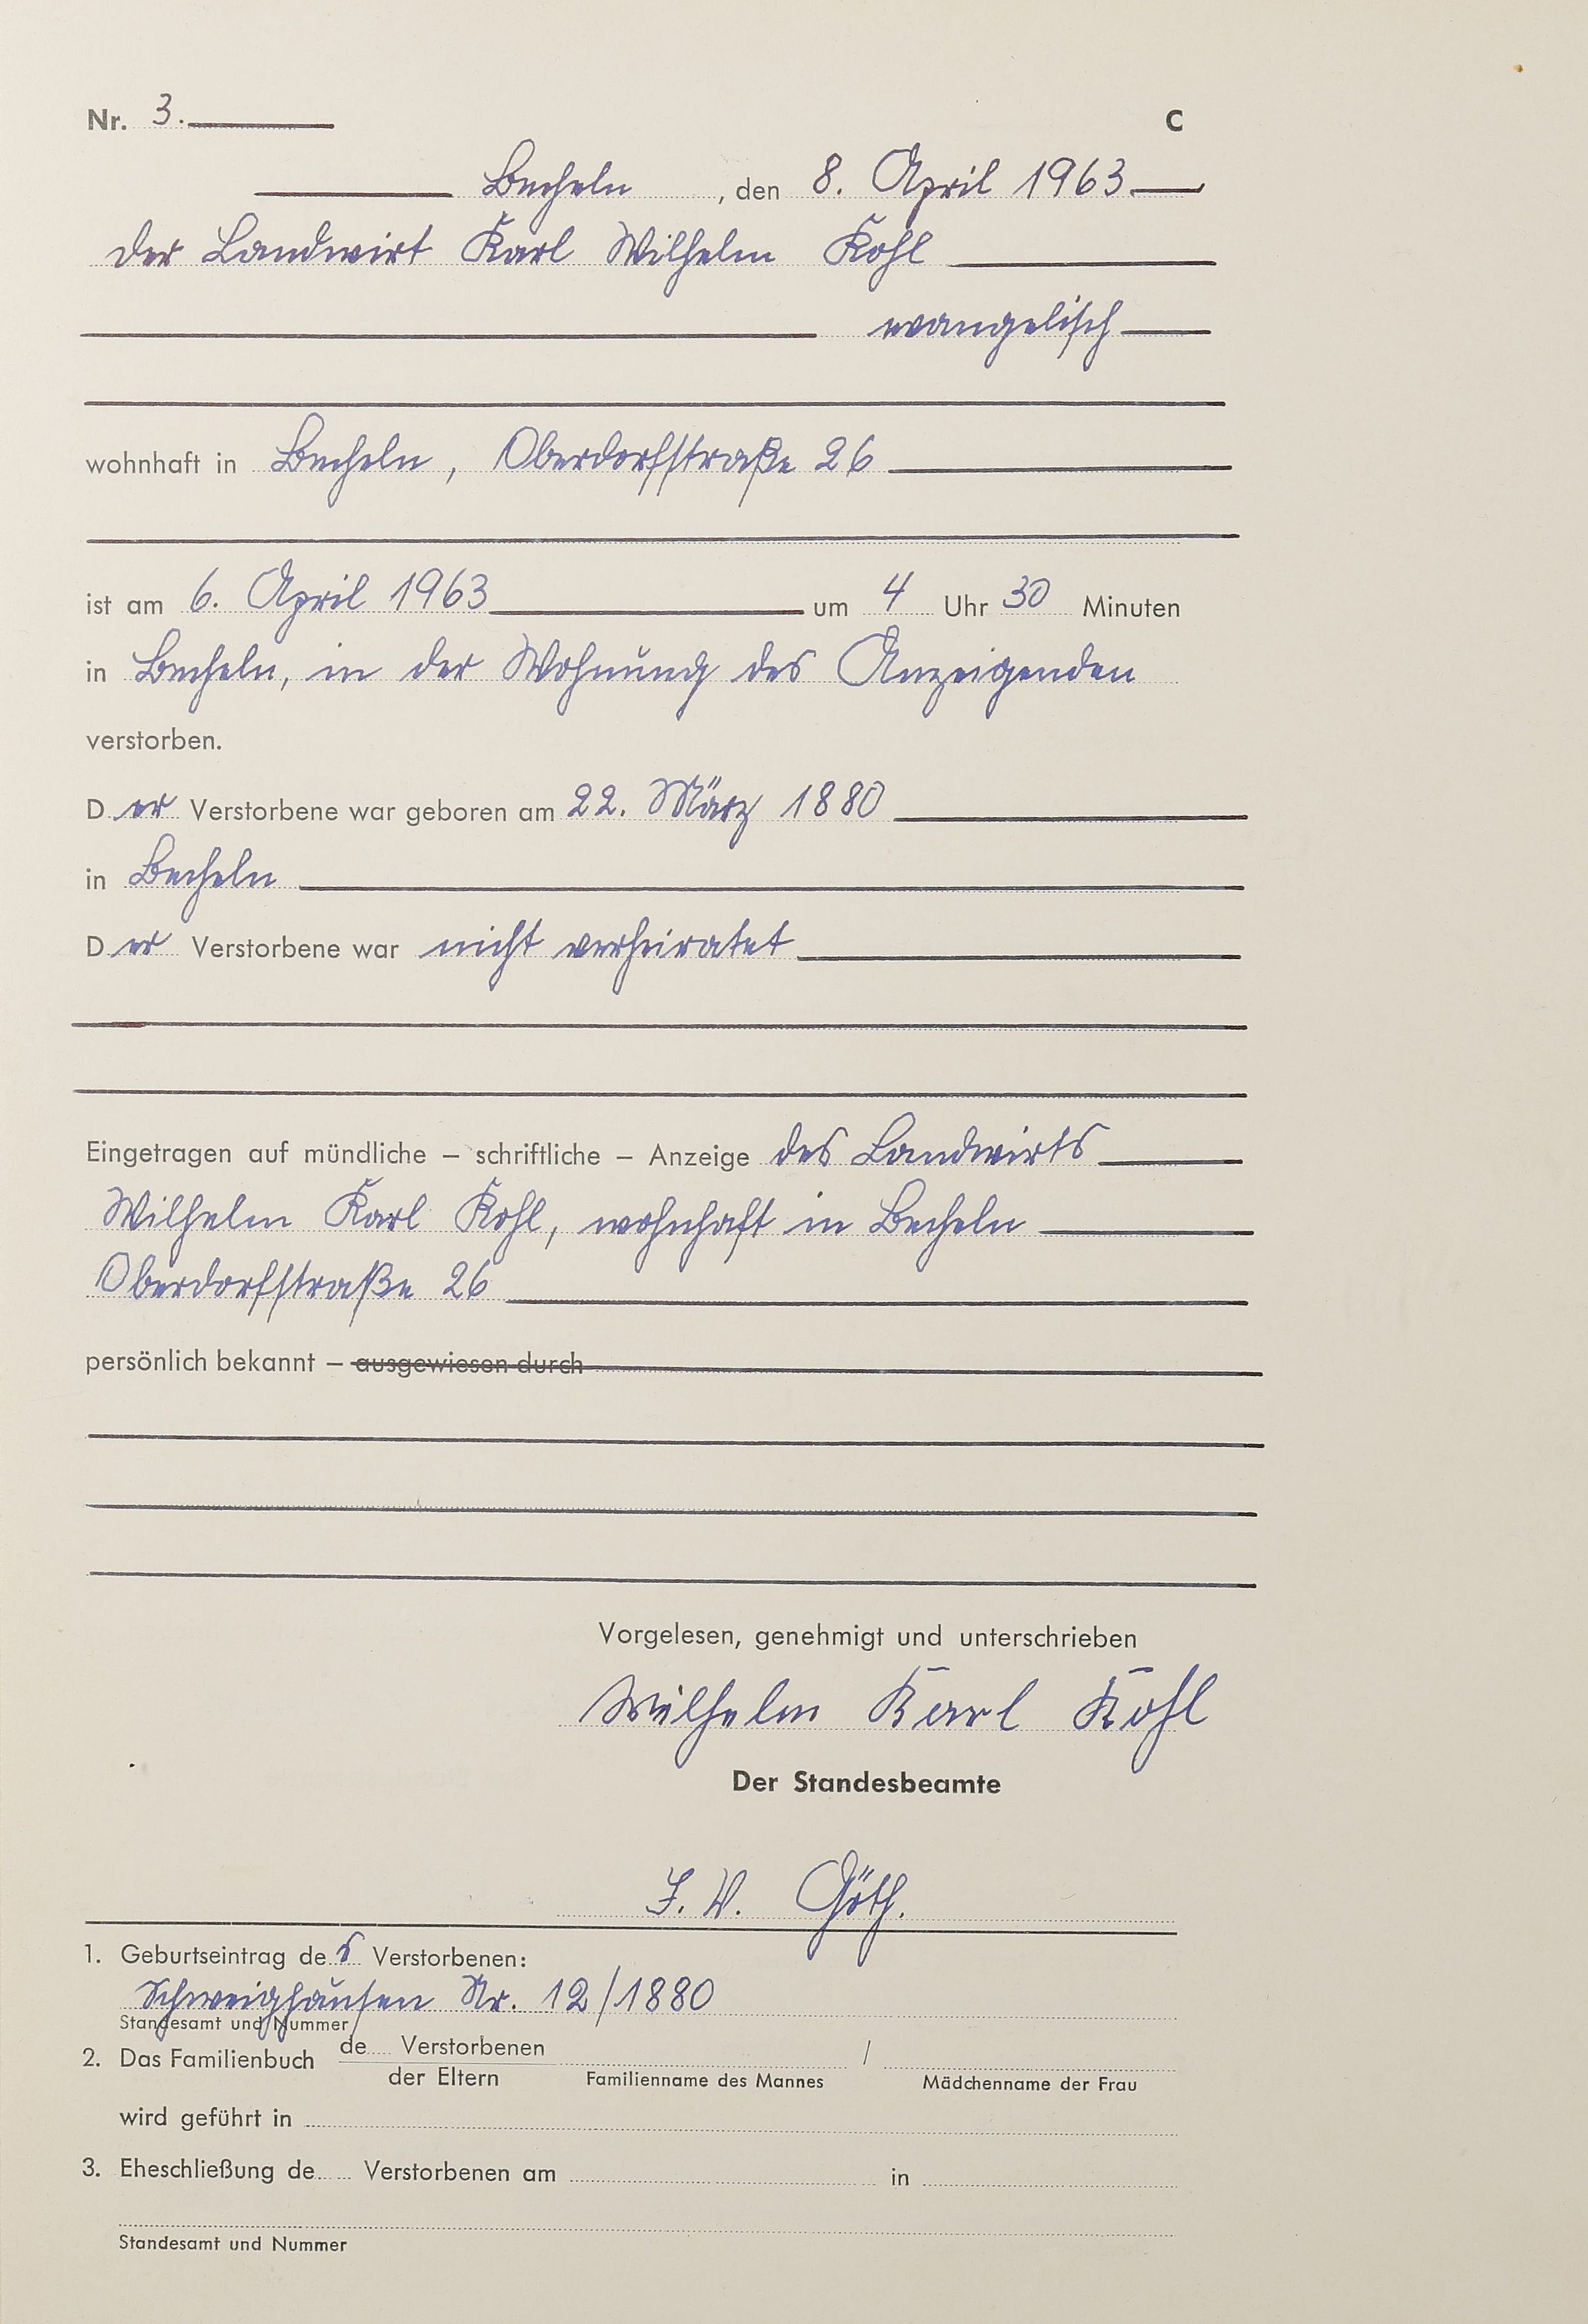 Nr. 3.
C
Becheln, den 8. April 1963
der Landwirt Karl Wilhelm Kohl
evangelisch
wohnhaft in Becheln, Oberdorfstraße 26
ist am 6. April 1963 um 4 Uhr 30 Minuten
in Becheln, in der Wohnung des Anzeigenden
verstorben.
Der Verstorbene war geboren am 22. März 1880
in Becheln
Der Verstorbene war nicht verheiratet
Eingetragen auf mündliche – schriftliche – Anzeige des Landwirts
Wilhelm Karl Kohl, wohnhaft in Becheln
Oberdorfstraße 26
persönlich bekannt – ausgewiesen durch
Vorgelesen, genehmigt und unterschrieben
Wilhelm Karl Kohl
Der Standesbeamte
I. V. Göth.
1. Geburtseintrag des Verstorbenen:
Schweighausen Nr. 12/1880
Standesamt und Nummer
2. Das Familienbuch de Verstorbenen /
der Eltern Familienname des Mannes Mädchenname der Frau
wird geführt in
3. Eheschließung de Verstorbenen am in
Standesamt und Nummer